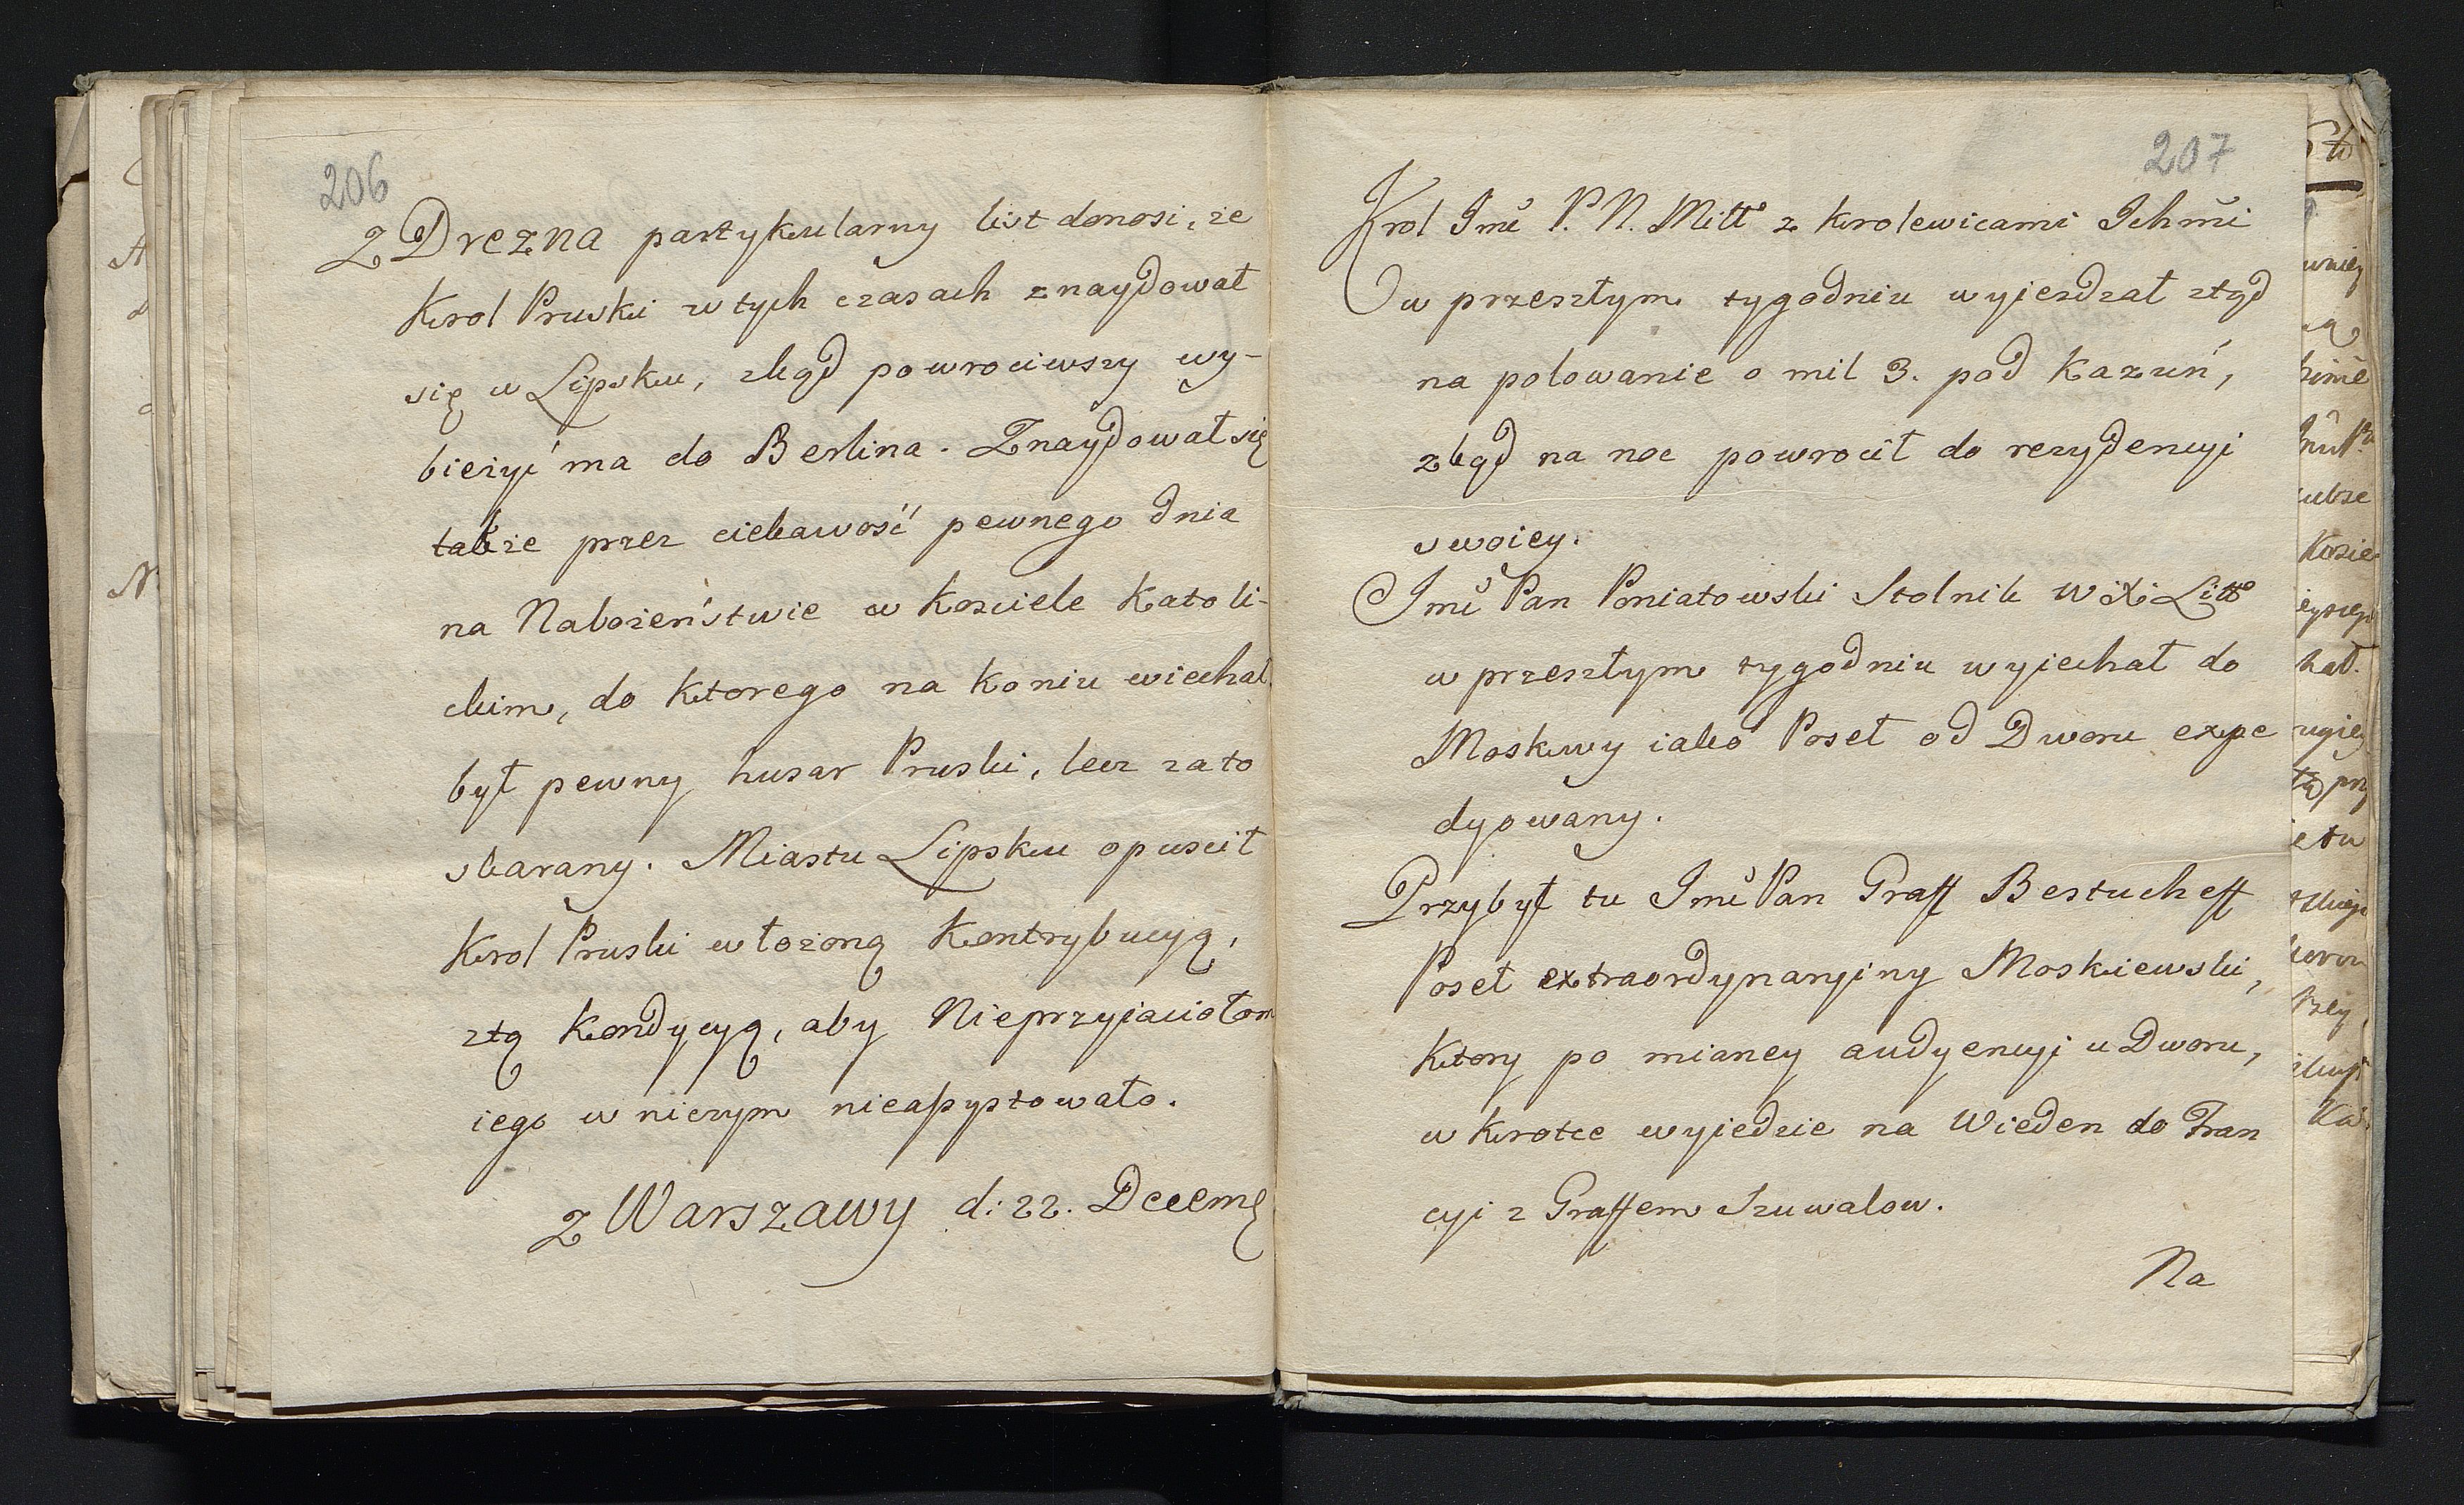 206
Z Drezna partykularny list donosi, że
Krol Pruski w tych czasach znaydował
się w Lipsku, zkąd powrociwszy wy-
bieżyć ma do Berlina. Znaydował się
także przez ciekawość pewnego dnia
na Nabożeństwie w Kosciele Katoli-
ckim, do ktorego na koniu wiechał
był pewny husar Pruski, lecz za to
skarany. Miastu Lipsku opuscił
Krol Pruski włożoną Kontrybucyą,
z tą Kondycyą, aby Nieprzyjaciołom
iego w niczym nieassystowało.
Z Warszawy d: 22. Decem
207
Krol Jmć P. N. Miłł z Krolewicami Ichmći
w przeszłym tygodniu wyjezdzał ztąd
na polowanie o mil 3. pod Kazuń,
zkąd na noc powrocił do rezydencyi
swoiey.
Jmć Pan Poniatowski Stolnik W X Litt
w przeszłym tygodniu wyjechał do
Moskwy iako Poseł od Dworu expe
dyowany.
Przybył tu Jmć Pan Graff Bestucheff
Poseł extraordynaryiny Moskiewski,
Ktory po mianey audyencyi u Dworu,
w Krotce wyjedzie na Wieden do Fran
cyi z Graffem Szuwalow.
Na